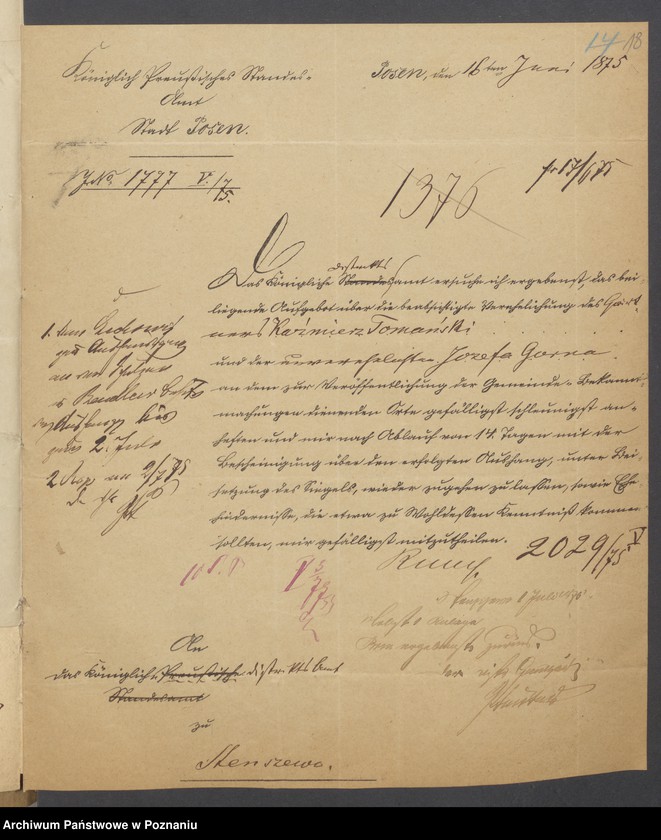 14 18
Königlich Preußisches Standes-
Amt
Stadt Posen.
Posen, den 16ten Juni 1875
J.No. 1777 V./75.
1376
pr 17/6 75
Das Königliche Distrikts Standesamt ersuche ich ergebenst, das bei-
liegende Aufgebot über die beabsichtigte Verehelichung des Gärt-
ners Kazimierz Tomański
und der unverehelichten Jozefa Gorna
an dem zur Veröffentlichung der Gemeinde-Bekannt-
machungen dienenden Orte gefälligst schleunigst an-
heften und mir nach Ablauf von 14 Tagen mit der
Bescheinigung über den erfolgten Aushang, unter Bei-
setzung des Siegels, wieder zugehen zu lassen, sowie Ehe-
hindernisse, die etwa zu Wohldessen Kenntniß kommen
sollten, mir gefälligst mitzutheilen.
2029/75 V
1.
2. Juli
2 9/7 75
1 Juli 1875
Nebst Anlage
ergebenst zurück.
An
das Königliche Preußische Distrikts Amt
Standesamt
zu
Stenszewo.
Archiwum Państwowe w Poznaniu